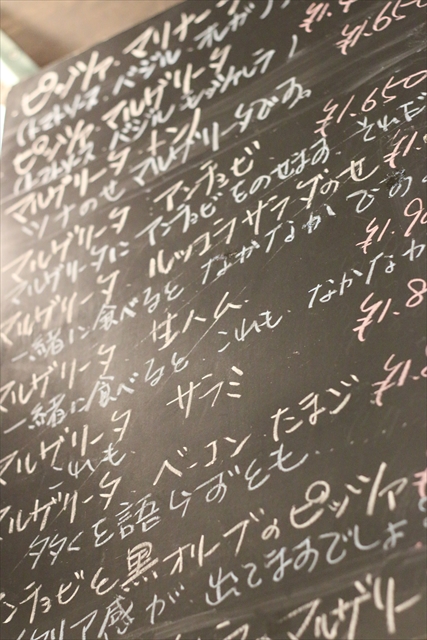 ・ピッツァ マリナーラ ¥1.4
(トマトソース・バジル・オレガノ
ピッツァ マルゲリータ ¥1.650
(トマトソース バジル モッツァレラ)
マルゲリータ トンノ ¥1.650
ツナのせ マルゲリータです。
マルゲリータ アンチョビ
マルゲリータに アンチョビをのせます。それだ
マルゲリータ ルッコラサラダのせ ¥1.
一緒に食べると なかなかでの
マルゲリータ 生ハム ¥1.9
一緒に食べると これも なかなか
マルゲリータ サラミ ¥1.8
これも
マルゲリータ ベーコン たまご ¥1.
多くを語らずとも...
ンチョビと黒オリーブのピッツァ ¥
タリア感が 出てますでしょ
マルゲリー